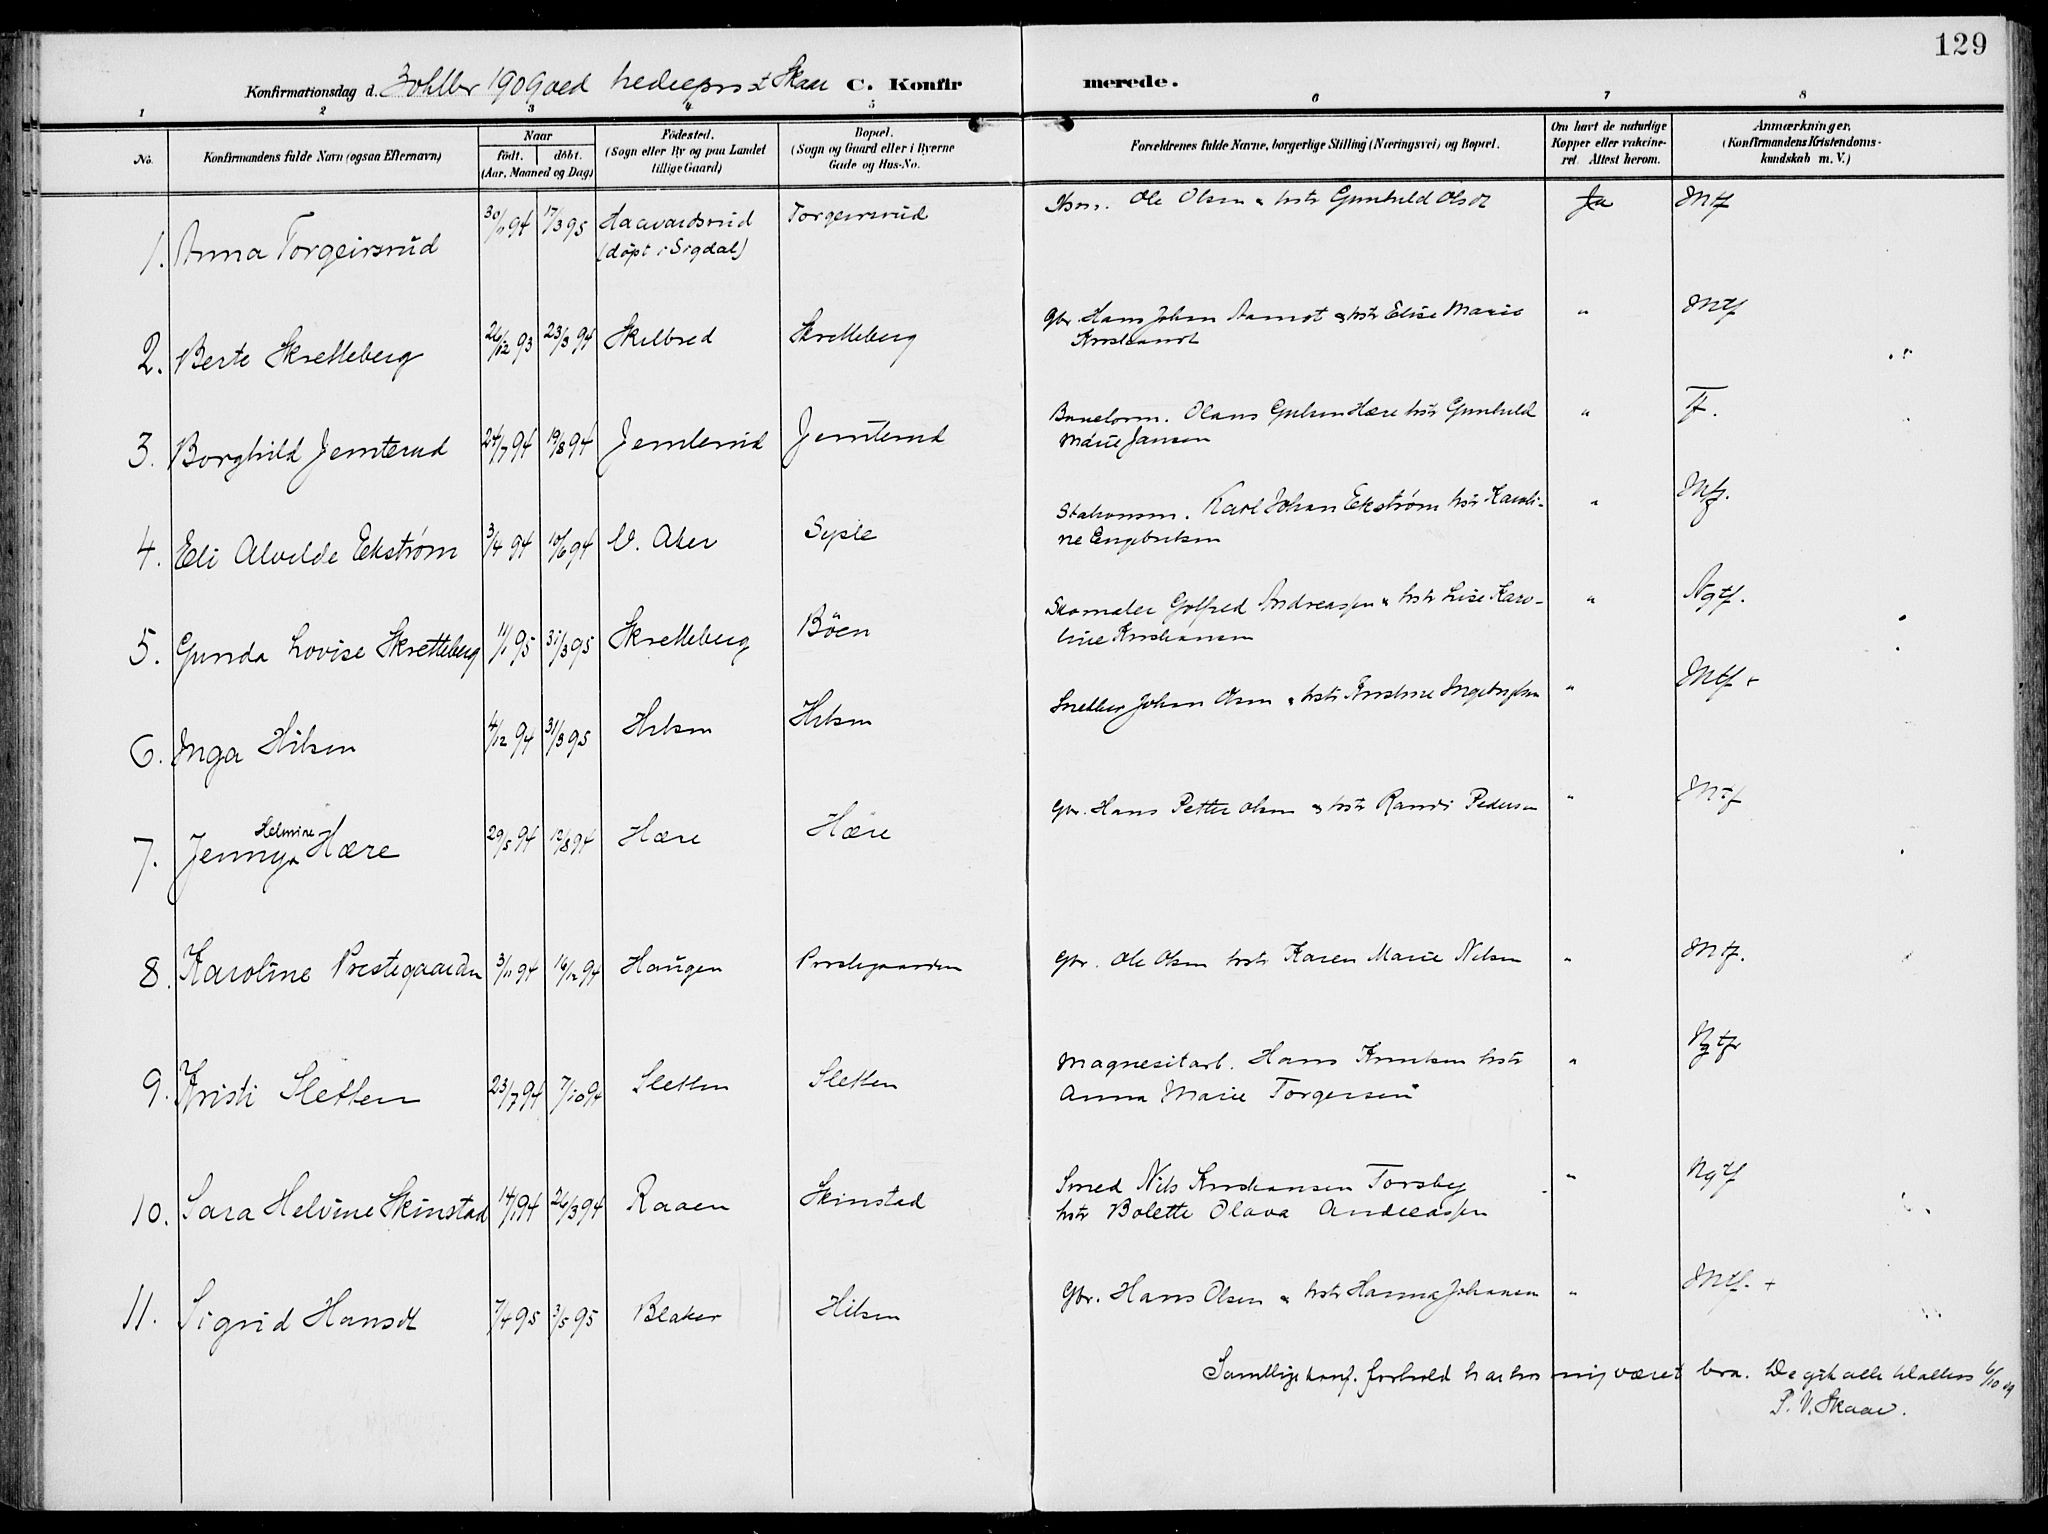 129
Konfirmationsdag d. 3 oktbr 1909 ved Skaar C. Konfirmerede.
1 2 3 4 5 6 7 8
No. Konfirmandens fulde Navn (ogsaa Efternavn) Naar født. døbt. (Aar, Maaned og Dag) Fødested. (Sogn eller By og paa Landet tillige Gaard) Bopæl. (Sogn og Gaard eller i Byerne Gade og Hus-No. Forældrenes fulde Navne, borgerlige Stilling (Næringsvei) og Bopæl. Om havt de naturlige Kopper eller vakcineret. Attest herom. Anmærkninger. (Konfirmandens Kristendomskundskab m. V.)
1. Anna Torgeirsrud 94 17/3 95 Haavardsrud Torgeirsrud Ole Olsen & hstr Gunhild Olsdt Ja Mtf
(døpt i Sigdal)
2. Berte Skretteberg 26/12 93 23/3 94 Skelbred Skretteberg Gbr. Hans Johan & hstr Elise Marie " Mtf
3. Borghild Jemterud 24/7 94 19/8 94 Jemterud Jemterud Baneform. Olaus Hære hstr Gunhild " Tf.
Marie Jansen
4. Eli Alvilde Eekstrøm 3/4 94 10/6 94 V. Aker Sysle Stationsm. Karl Johan Eekstrøm hstr Karoli- "
ne Engebretsen
5. Gunda Lovise Skretteberg 11/1 95 31/3 95 Skretteberg Bøen Skomaker Golfred Andreassen & hstr Lise Karo- " Ngtf.
line Kristiansen
6. Inga Hilsen 4/12 94 31/3 95 Hilsen Hilsen Snekker Johan Olsen & hstr Kristine " Mtf +
7. Jenny Helmine Hære 29/5 94 12/8 94 Hære Hære Gbr. Hans Petter Olsen & hstr Randi Pedersen " Mtf
8. Karoline Prestegaarden 3/11 94 16/12 94 Haugen Prestegaarden Gbr. Ole Olsen hstr Karen Marie Nilsen " Mtf.
9. Kristi Sletten 23/7 94 7/10 94 Sletten Sletten Magnesitarb. Hans Knutsen hstr " Ngtf
Anna Marie Torgersen
10. Sara Helvine Skinstad 14/1 94 26/3 94 Raaen Skinstad Smed Nils Kristiansen Torsby " Ngtf
hstr Bolette Olava Andreassen
11. Sigrid Hansdt 7/4 95 3/5 95 Blaker Hilsen Gbr. Hans Olsen & hstr Hanna Johansen " Mtf. +
Samtlige konf. forhold har hos mig været bra. De gik alle til alters 6/10 09
P. V. Skaar.